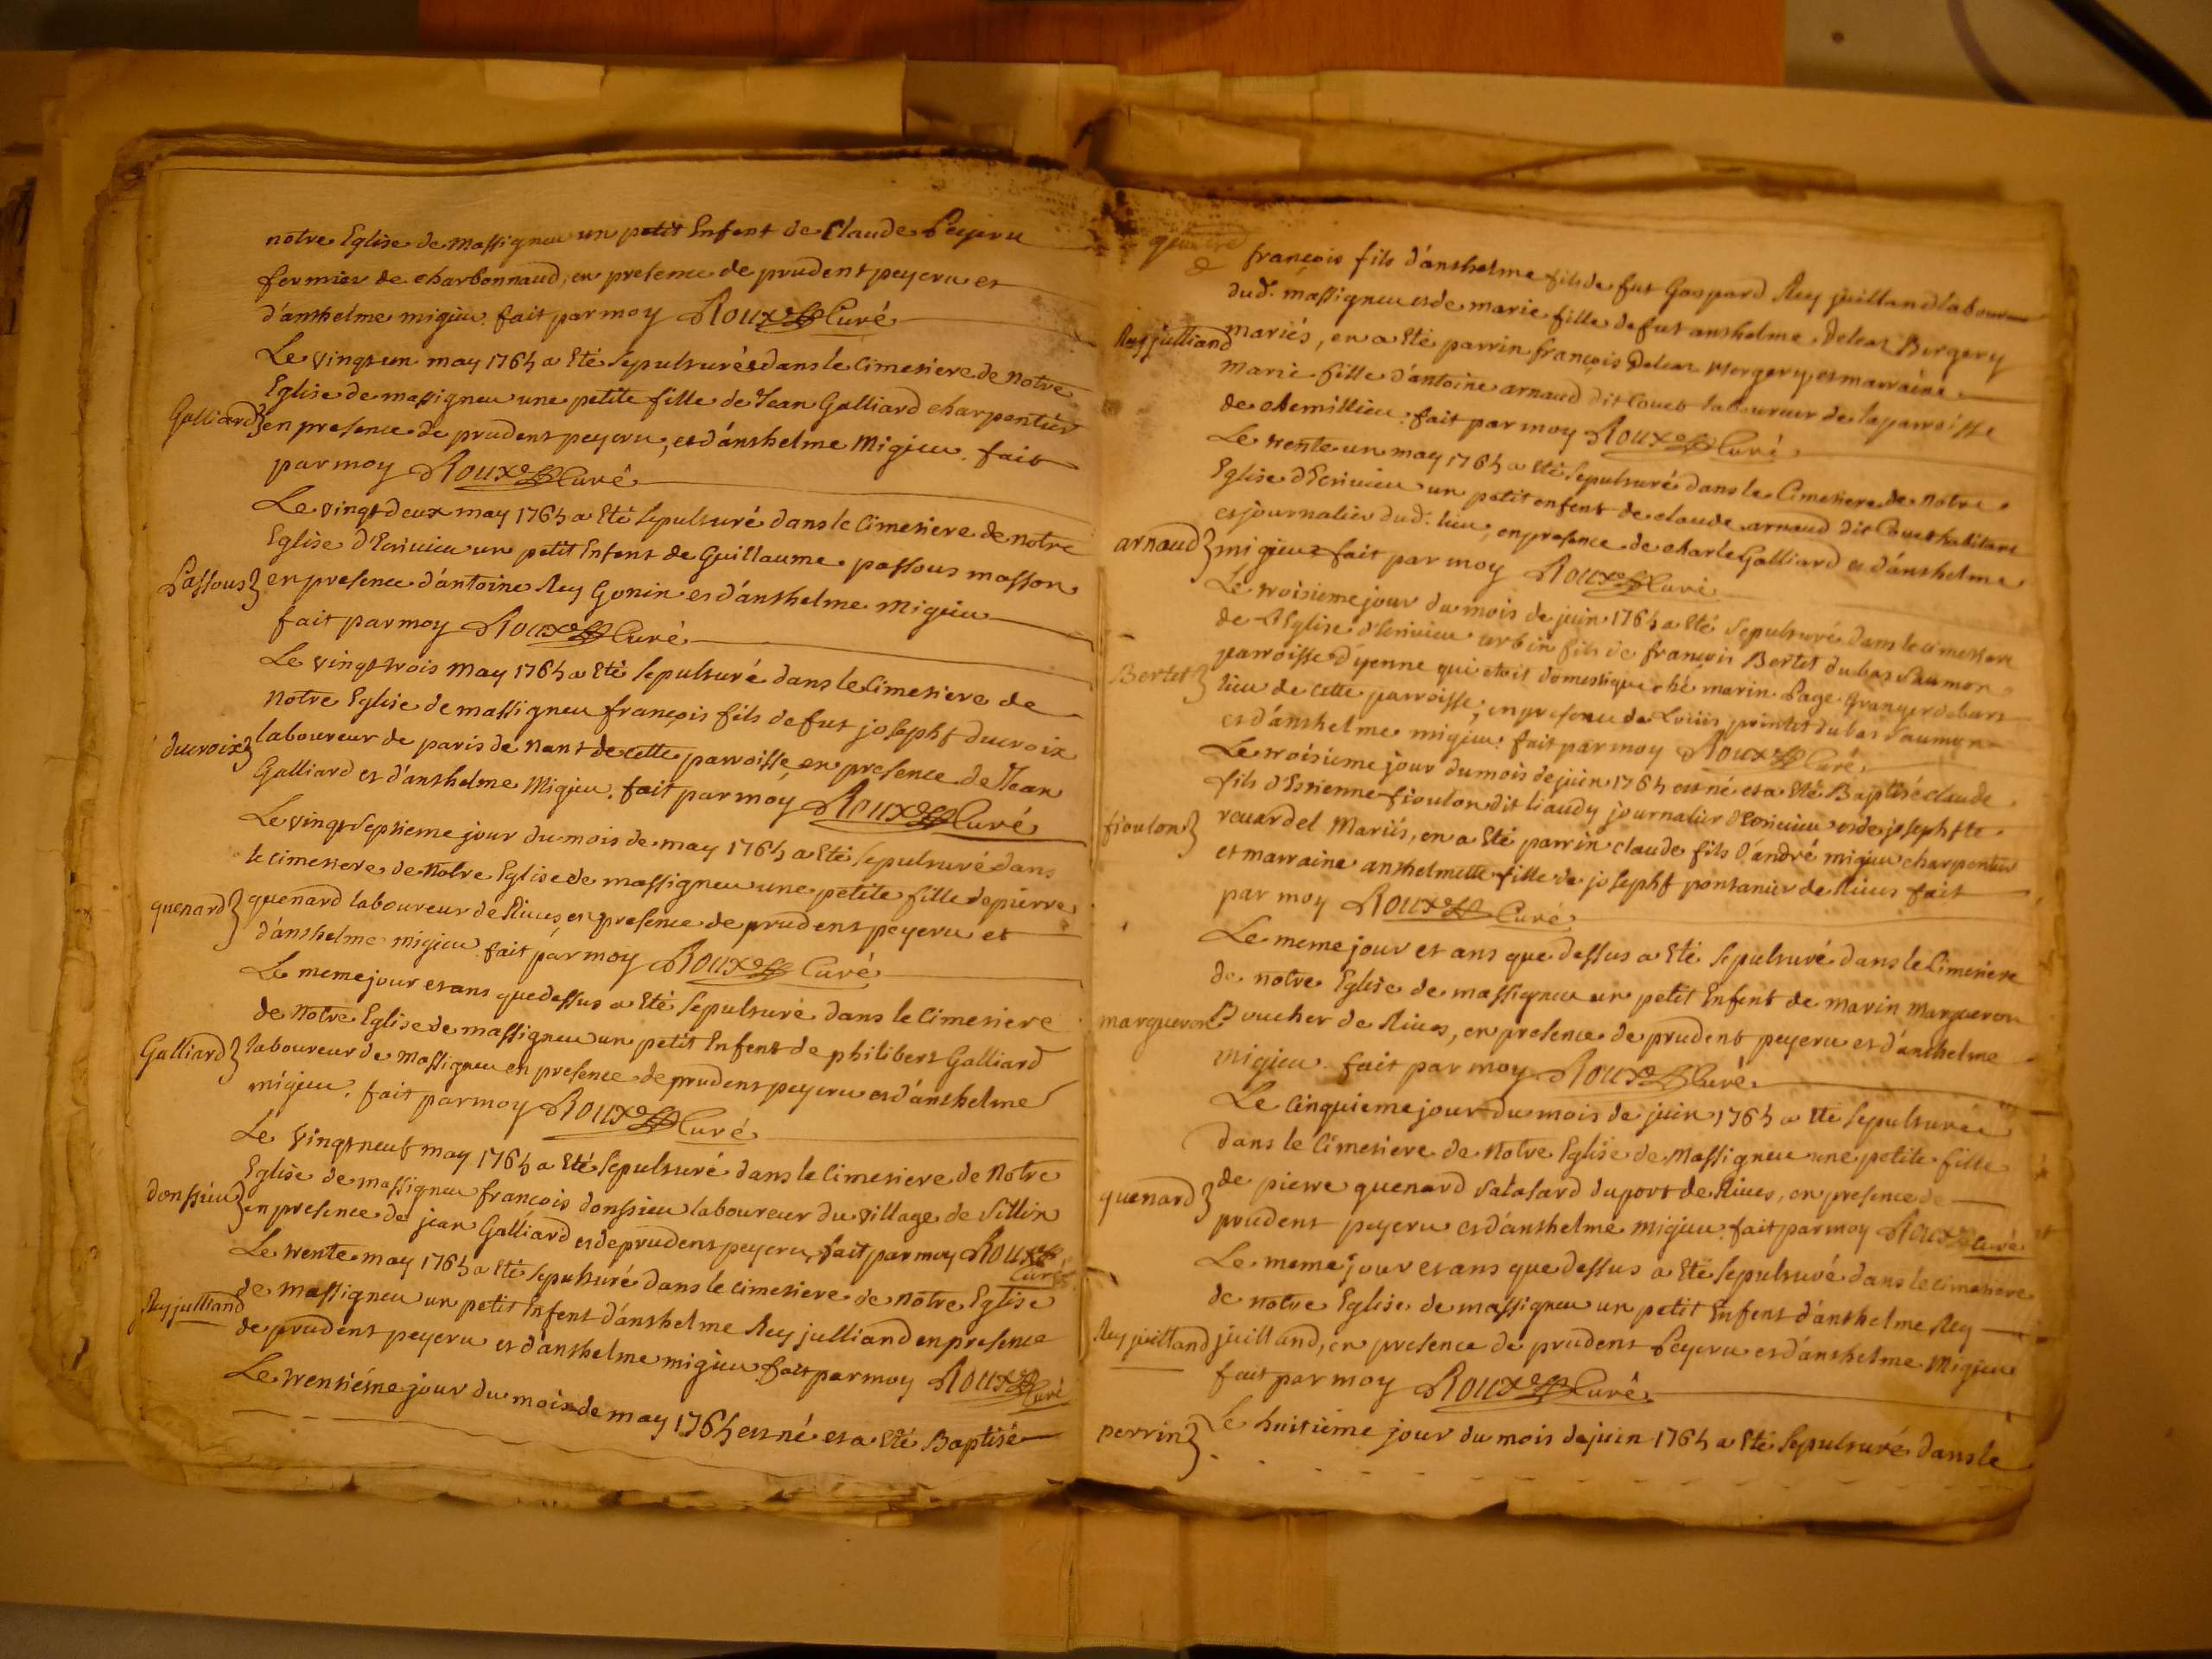 notre Eglise de Massigneu un petit Enfent de Claude Peyeru
fermier de charbonnaud, en presence de prudent peyeru et
d'anthelme migieu. fait par moy Roux Curé
Le vingt un may 1765 a Eté sepulturée dans le Cimetiere de notre
Eglise de massigneu une petite fille de Jean Galliard charpentier
Galliard} en presence de prudent peyeru, et d'anthelme Migieu. fait
par moy Roux Curé
Le vingt deux may 1765 a Eté sepulturé dans le Cimetiere de notre
Eglise d'Ecrivieu un petit Enfent de Guillaume passous masson
Passous} en presence d'antoine Rey Gonin et d'anthelme Migieu
fait par moy Roux Curé
Le vingt trois May 1765 a Eté sepulturé dans le Cimetiere de
Notre Eglise de massigneu françois fils de fut josepht ducroix
ducroix} laboureur de paris de Nant de cette parroisse, en presence de Jean
Galliard et d'anthelme Migieu. fait par moy Roux Curé
Le vingt septieme jour du mois de may 1765 a Eté sepulturé dans
le cimetiere de Notre Eglise de massigneu une petite fille de pierre
quenard} quenard laboureur de Rives, en presence de prudent peyeru et
d'anthelme migieu fait par moy Roux Curé
Le meme jour et ans que dessus a Eté sepulturé dans le Cimetiere
de Notre Eglise de massigneu un petit Enfent de philibert Galliard
Galliard} laboureur de Massigneu en presence de prudent peyeru et d'anthelme
migieu. fait par moy Roux Curé
Le vingt neuf may 1765 a Eté sepulturé dans le Cimetiere de Notre
Eglise de massigneu françois donssieu laboureur du village de Sillin
Donssieu} en presence de jean Galliard et de prudent peyeru, fait par moy Roux
Curé
Le trente may 1765 a Eté sepulturé dans le cimetiere de notre Eglise
de massigneu un petit Enfent d'anthelme Rey julliand en presence
Rey julliand
de prudent peyeru et d'anthelme migieu fait par moy Roux Curé
Le trentiéme jour du mois de may 1765 est né et a Eté Baptisé
françois fils d'anthelme fils de fut Gaspard Rey juilland laboureur
dud. massigneu et de marie fille de fut anthelme Deleaz Bergery
Rey julliand mariés, en a Eté parrin françois Deleaz Bergery et marraine
Marie fille d'antoine arnaud dit Couet laboureur de la parroisse
de chemillieu. fait par moy Roux Curé
Le trente un may 1765 a Eté sepulturé dans le Cimetiere de Notre
Eglise d'Ecrivieu un petit enfent de claude arnaud dit Couet habitant
et journalier dud. lieu, en presence de charle Galliard et d'anthelme
arnaud} migieu fait par moy Roux Curé
Le troisieme jour du mois de juin 1765 a Eté sepulturé dans le cimetiere
de l'Eglise d'Ecrivieu urbin fils de françois Bertet du bas Saumon
parroisse d'yenne qui etoit domestique ché marin Page Granger
Bertet} lieu de cette parroisse, en presence de Louis printet du bas saumon
et d'anthelme migieu. fait par moy Roux Curé
Le troisieme jour du mois de juin 1765 est né et a Eté Baptisé claude
fils d'Estienne fioulon dit liaudy journalier d'Ecrivieu et de josephte
fioulon} revardel Mariés, en a Eté parrin claude fils d'andré migieu charpentier
et marraine anthelmette fille de josepht pontanier de Rives fait
par moy Roux Curé
Le meme jour et ans que dessus a Eté sepulturé dans le Cimetiere
de notre Eglise de massigneu un petit Enfent de marin Margueron
margueron Boucher de Rives, en presence de prudent peyeru et d'anthelme
migieu. fait par moy Roux Curé
Le Cinquieme jour du mois de juin 1765 a Eté sepulturée
dans le Cimetiere de Notre Eglise de Massigneu une petite fille
quenard} de pierre quenard Satasard du port de Rives, en presence de
prudent peyeru et d'anthelme migieu. fait par moy Roux Curé
Le meme jour et ans que dessus a Eté sepulturé dans le cimetiere
de notre Eglise de massigneu un petit Enfent d'anthelme Rey
Rey juilland juilland, en presence de prudent Peyeru et d'anthelme Migieu
fait par moy Roux Curé
perrin} Le huitieme jour du mois de juin 1765 a Eté sepulturé dans le